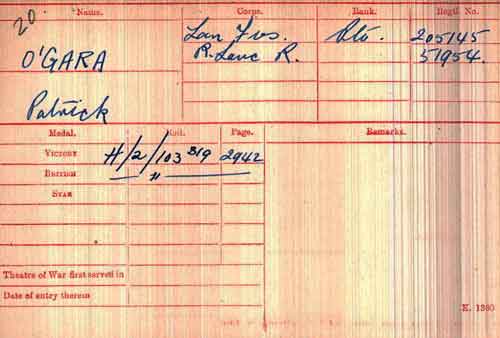 20.
Name. Corps. Rank. Regtl. No.
O'GARA Lan Fus. Pte. 205145
R. Lanc R. 51954.
Patrick
Medal. Roll. Page. Remarks.
VICTORY H/2/103 B19 2942
BRITISH — " —
STAR
Theatre of War first served in
Date of entry therein
K. 1380